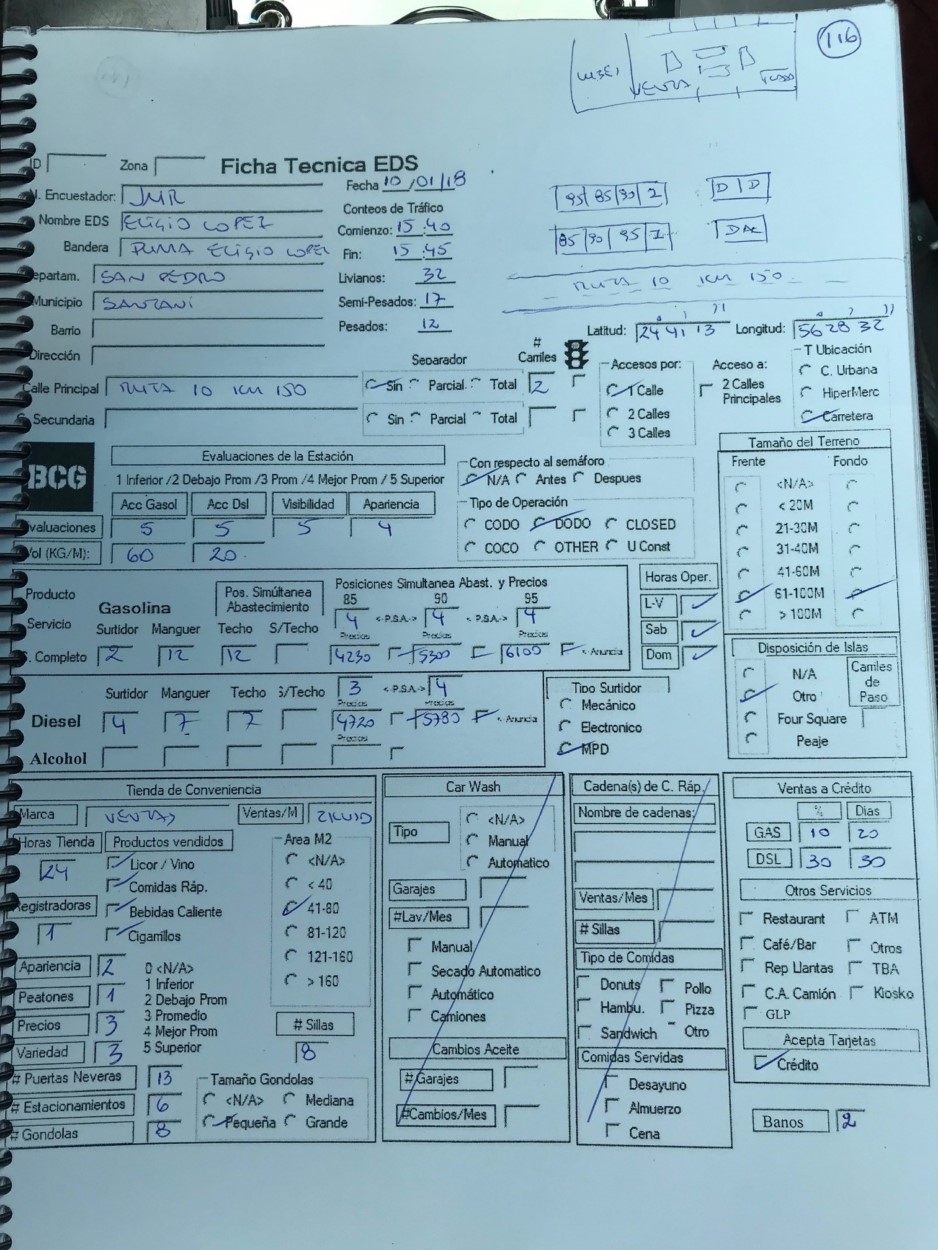 116
VENTA
ID Zona Ficha Tecnica EDS
Fecha 10/01/18
N. Encuestador: JMR
Conteos de Tráfico
95 85 90 I D I D
Nombre EDS ELIGIO LOPEZ
Comienzo: 15:40
Bandera PUMA ELIGIO LOPEZ
Fin: 15:45
85 90 95 I
epartam. SAN PEDRO
Livianos: 32
RUTA 10 KM 150
Municipio
Semi-Pesados: 17
Barrio
Pesados: 12
Latitud: 24 41 13 Longitud: 56 28 32
Dirección
Separador # Carriles
Accesos por: Acceso a: T Ubicación
Calle Principal RUTA 10 KM 150 Sin Parcial Total 2
1 Calle 2 Calles Principales C. Urbana
HiperMerc
Secundaria Sin Parcial Total
2 Calles Carretera
3 Calles
BCG
Evaluaciones de la Estación
1 Inferior /2 Debajo Prom /3 Prom /4 Mejor Prom / 5 Superior
Acc Gasol Acc Dsl Visibilidad Apariencia
valuaciones 5 5 5 4
Vol (KG/M): 60 20
Con respecto al semáforo
N/A Antes Despues
Tipo de Operación
CODO DODO CLOSED
COCO OTHER U Const
Tamaño del Terreno
Frente Fondo
<N/A>
< 20M
21-30M
31-40M
41-60M
61-100M
> 100M
Producto
Servicio
Gasolina
Pos. Simúltanea Abastecimiento
Posiciones Simultanea Abast. y Precios
85 90 95
4 <-P.S.A.-> 4 <-P.S.A.-> 4
Surtidor Manguer Techo S/Techo Precios Precios Precios
. Completo 2 12 12 4230 5300 6100 <- Anuncia
Horas Oper.
L-V
Sab
Dom
Disposición de Islas
N/A
Otro
Four Square
Peaje
Carriles de Paso
Surtidor Manguer Techo S/Techo 3 <-P.S.A.-> 4
Precios Precios
Diesel 4 7 7 4720 5780 <- Anuncia
Precios
Alcohol
Tipo Surtidor
Mecánico
Electronico
MPD
Tienda de Conveniencia
Marca Ventas/M
Horas Tienda Productos vendidos
24
Licor / Vino
Comidas Ráp.
Bebidas Caliente
Cigarrillos
Registradoras
1
Area M2
<N/A>
< 40
41-80
81-120
121-160
> 160
Apariencia 2
Peatones 1
Precios 3
Variedad 3
0 <N/A>
1 Inferior
2 Debajo Prom
3 Promedio
4 Mejor Prom
5 Superior
# Sillas
8
# Puertas Neveras 13
# Estacionamientos 6
# Gondolas 8
Tamaño Gondolas
<N/A> Mediana
Pequeña Grande
Car Wash
Tipo
<N/A>
Manual
Automatico
Garajes
#Lav/Mes
Manual
Secado Automatico
Automático
Camiones
Cambios Aceite
#Garajes
#Cambios/Mes
Cadena(s) de C. Ráp.
Nombre de cadenas:
Ventas/Mes
# Sillas
Tipo de Comidas
Donuts Pollo
Hambu. Pizza
Sandwich Otro
Comidas Servidas
Desayuno
Almuerzo
Cena
Ventas a Crédito
% Dias
GAS 10 20
DSL 30 30
Otros Servicios
Restaurant ATM
Café/Bar Otros
Rep Llantas TBA
C.A. Camión Kiosko
GLP
Acepta Tarjetas
Crédito
Banos 2